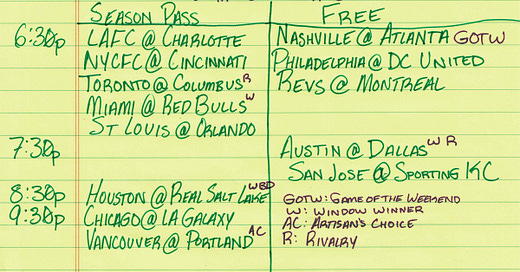 SEASON PASS FREE
6:30p LAFC @ CHARLOTTE NASHVILLE @ ATLANTA GOTW
NYCFC @ CINCINNATI PHILADELPHIA @ DC UNITED
TORONTO @ COLUMBUS R REVS @ MONTREAL
MIAMI @ RED BULLS W
ST LOUIS @ ORLANDO
7:30p AUSTIN @ DALLAS W R
SAN JOSE @ SPORTING KC
8:30p HOUSTON @ REAL SALT LAKE WBD GOTW: GAME OF THE WEEKEND
9:30p CHICAGO @ LA GALAXY W: WINDOW WINNER
VANCOUVER @ PORTLAND AC AC: ARTISAN'S CHOICE
R: RIVALRY